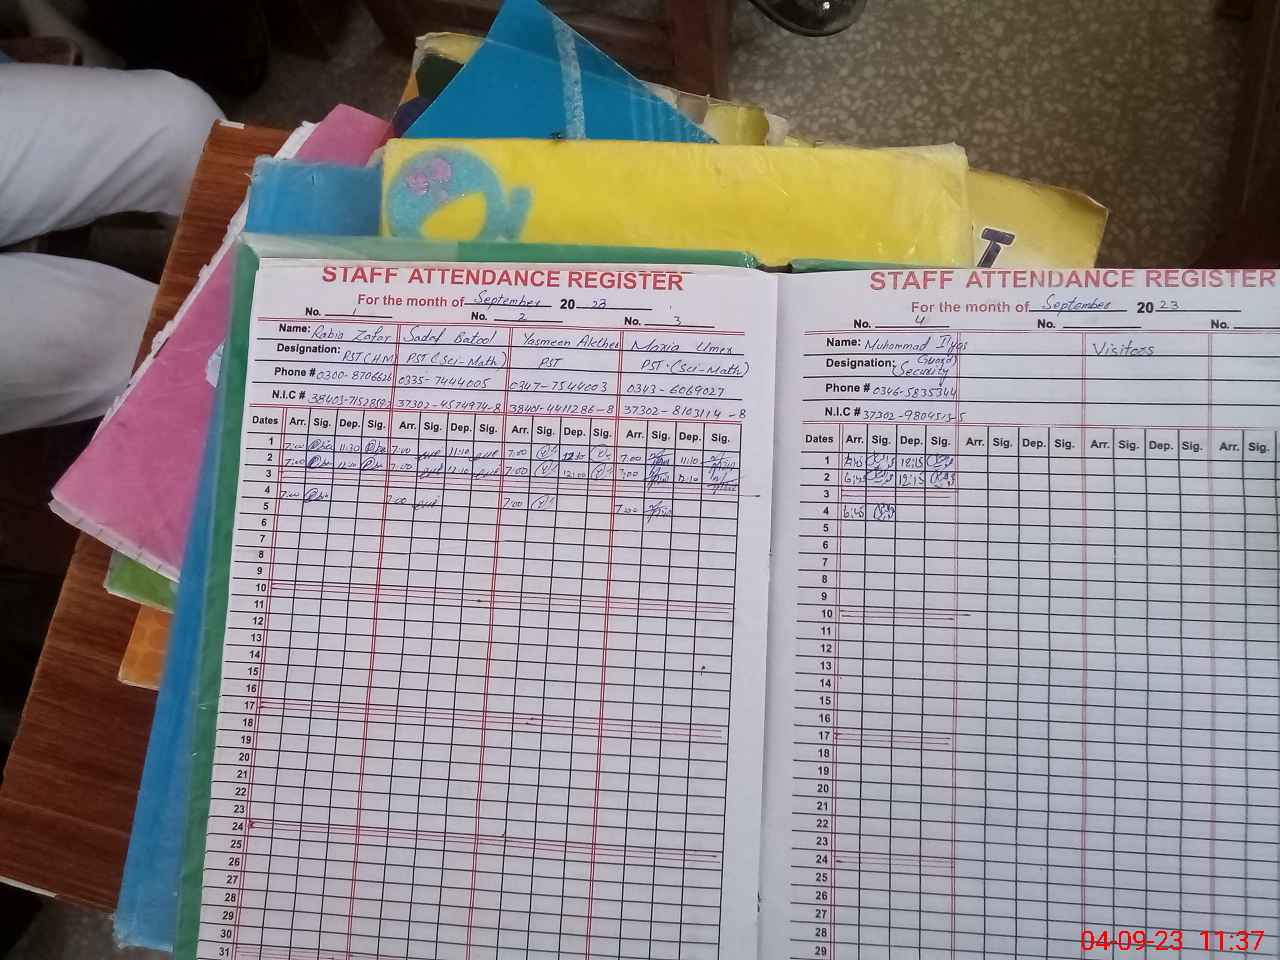 STAFF ATTENDANCE REGISTER
For the month of September 20 23
No. 1 No. 2 No. 3
Name: Rabia Zafar Sadaf Batool Yasmeen Akther Maria Umer
Designation: PST (H.M) PST (Sci-Math) PST PST (Sci-Math)
Phone # 0300-8706626 0335-7444005 0347-7544003 0343-6069027
N.I.C # 37302-4574974-8 38401-4411286-8 37302-8103114-8
Dates Arr. Sig. Dep. Sig. Arr. Sig. Dep. Sig. Arr. Sig. Dep. Sig. Arr. Sig. Dep. Sig.
1 7:00 11:30 7:00 11:10 7:00 12:10 7:00 11:10
2 7:00 12:10 7:00 12:10 7:00 12:00 7:00 12:10
3
4 7:00 7:00 7:00 7:00
5
6
7
8
9
10
11
12
13
14
15
16
17
18
19
20
21
22
23
24
25
26
27
28
29
30
31
STAFF ATTENDANCE REGISTER
For the month of September 20 23
No. 4 No. No.
Name: Muhammad Ilyas Visitors
Designation: Guard (Security)
Phone # 0346-5835344
N.I.C # 37302-9804513-5
Dates Arr. Sig. Dep. Sig. Arr. Sig. Dep. Sig. Arr. Sig. Dep. Sig. Arr. Sig.
1 6:45 12:15
2 6:45 12:15
3
4 6:45
5
6
7
8
9
10
11
12
13
14
15
16
17
18
19
20
21
22
23
24
25
26
27
28
29
04-09-23 11:37